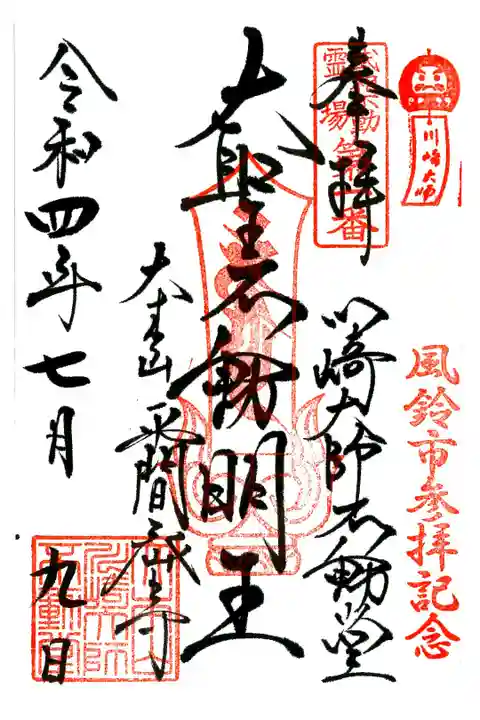 川崎大師
風鈴市参拝記念
奉拝
霊場
番
川崎大師不動堂
大聖不動明王
大本山
平間寺
令和四年七月
九日